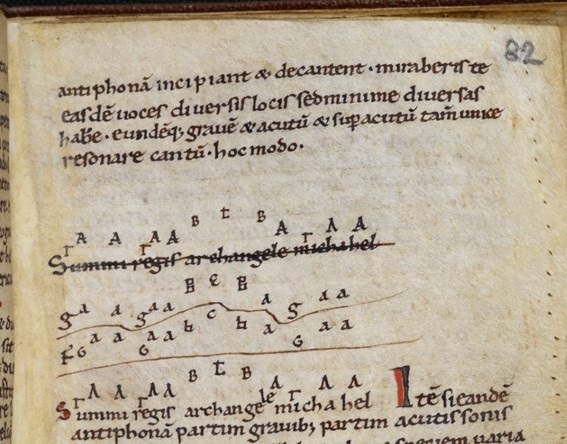 82
antiphonā incipiant & decantent · miraberis te
easdē uoces diuersis locis sed minime diuersas
hab̄e · eundēq; grauē & acutū & sup acutū tam̄ unice
resonare cantū · hoc modo ·
Γ A A Γ A A B C B A Γ A A
Summi regis archangele michahel
B C B
g a a g a a a g a a
F G a a G a h c h a G a a
Γ A A Γ A A B C B A Γ A A
Summi regis archangele michahel Itē si eandē
antiphonā partim grauib; partim acutis sonis
uaria